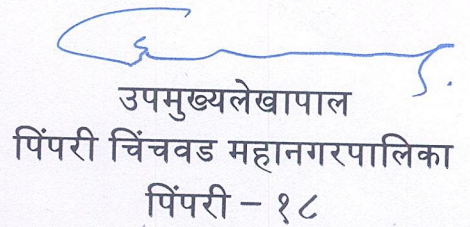 उपमुख्यलेखापाल
पिंपरी चिंचवड महानगरपालिका
पिंपरी – १८